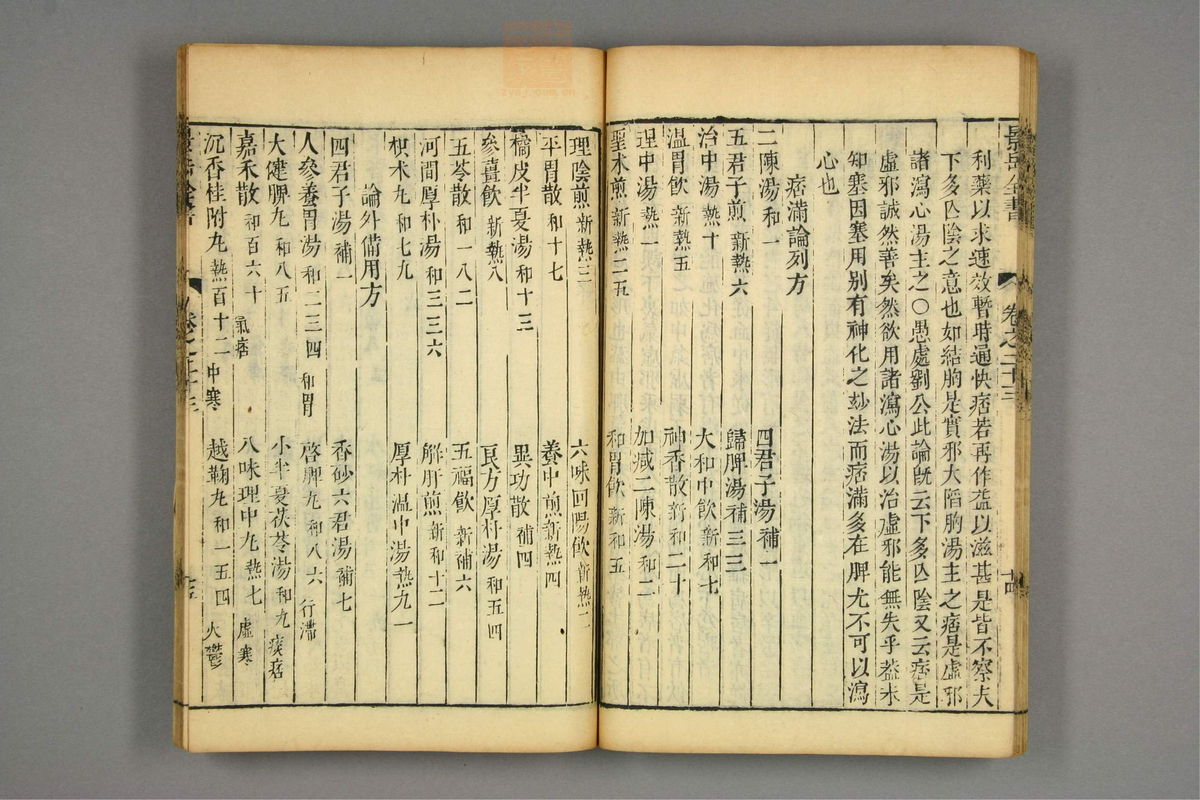 景岳全書 卷之二十三 十四
利藥以求速效暫時通快痞若再作益以滋甚是皆不察夫
下多亾陰之意也如結胸是實邪大䧟胸湯主之痞是虛邪
諸瀉心湯主之○愚處劉公此論旣云下多亾陰又云痞是
虛邪誠然善矣然欲用諸瀉心湯以治虛邪能無失乎葢未
知塞因塞用别有神化之玅法而痞滿多在脾尤不可以瀉
心也
痞滿論列方
二陳湯 和一 四君子湯 補一
五君子煎 新熱六 歸脾湯 補三三
治中湯 熱十 大和中飲 新和七
温胃飲 新熱五 神香散 新和二十
理中湯 熱一 加减二陳湯 和二
聖术煎 新熱二五 和胃飲 新和五
理陰煎 新熱三 六味回陽飲 新熱二
平胃散 和十七 養中煎 新熱四
橘皮半夏湯 和十三 異功散 補四
參薑飲 新熱八 厚朴湯 和五四
五苓散 和一八二 五福飲 新補六
河間厚朴湯 和三三六 解肝煎 新和十二
枳术丸 和七九 厚朴温中湯 熱九一
論外備用方
四君子湯 補一 香砂六君湯 補七
人參養胃湯 和二三四 和胃 啓脾丸 和八六 行滯
大健脾丸 和八五 小半夏茯苓湯 和九 痰痞
嘉禾散 和百六十 氣痞 八味理中丸 熱七 虛寒
沉香桂附丸 熱百十二 中寒 越鞠丸 和一五四 火鬱